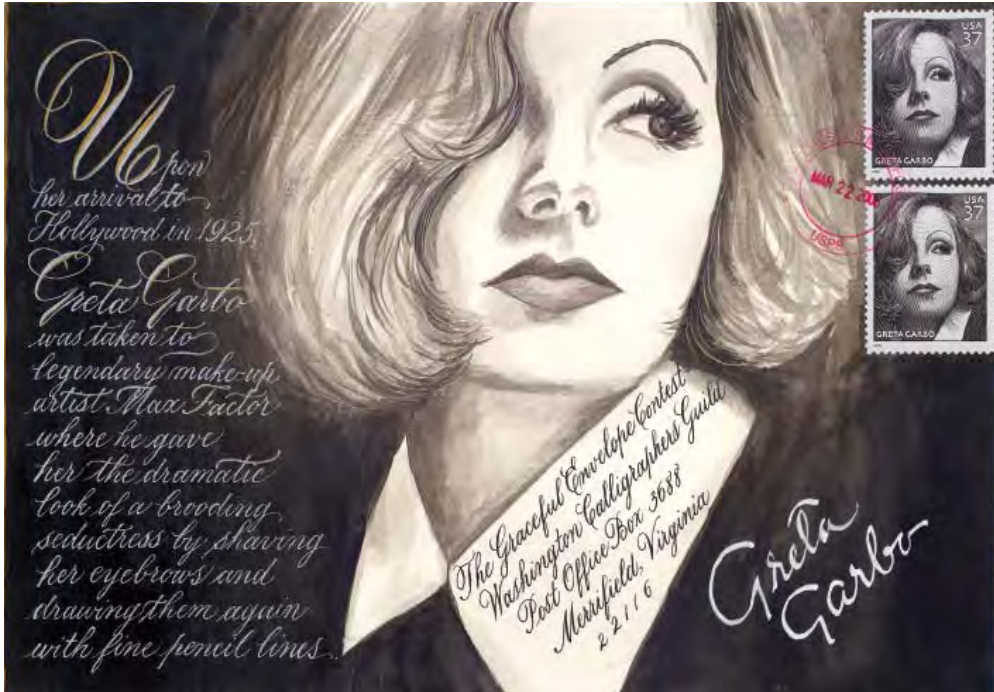 Upon
her arrival to
Hollywood in 1925,
Greta Garbo
was taken to
legendary make-up
artist Max Factor
where he gave
her the dramatic
look of a brooding
seductress by shaving
her eyebrows and
drawing them again
with fine pencil lines..
The Graceful Envelope Contest
Washington Calligraphers Guild
Post Office Box 3688
Merrifield, Virginia
22116
Greta
Garbo
USA
37
GRETA GARBO
MAR 22
USPS
USA
37
GRETA GARBO